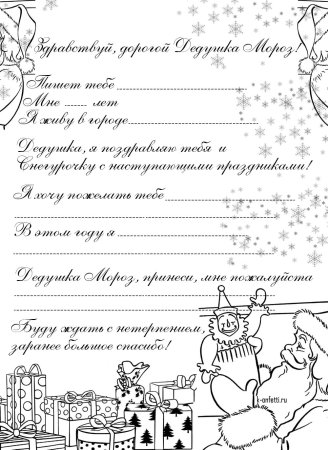 Здравствуй, дорогой Дедушка Мороз!
Пишет тебе
Мне ____ лет
Я живу в городе
Дедушка, я поздравляю тебя и
Снегурочку с наступающими праздниками!
Я хочу пожелать тебе
В этом году я
Дедушка Мороз, принеси, мне пожалуйста
Буду ждать с нетерпением,
заранее большое спасибо!
i-onfetti.ru